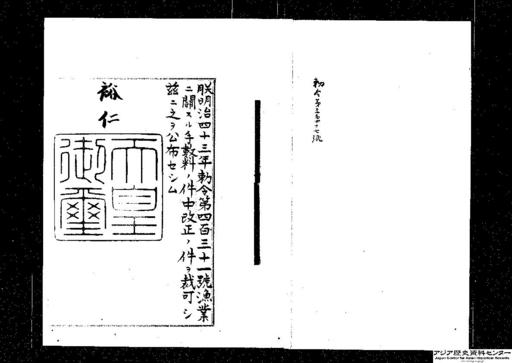 朕明治四十三年勅令第四百三十一號漁業
ニ關スル手數料ノ件中改正ノ件ヲ裁可シ
茲ニ之ヲ公布セシム
裕仁
天皇
御璽
アジア歴史資料センター
Japan Center for Asian Historical Records